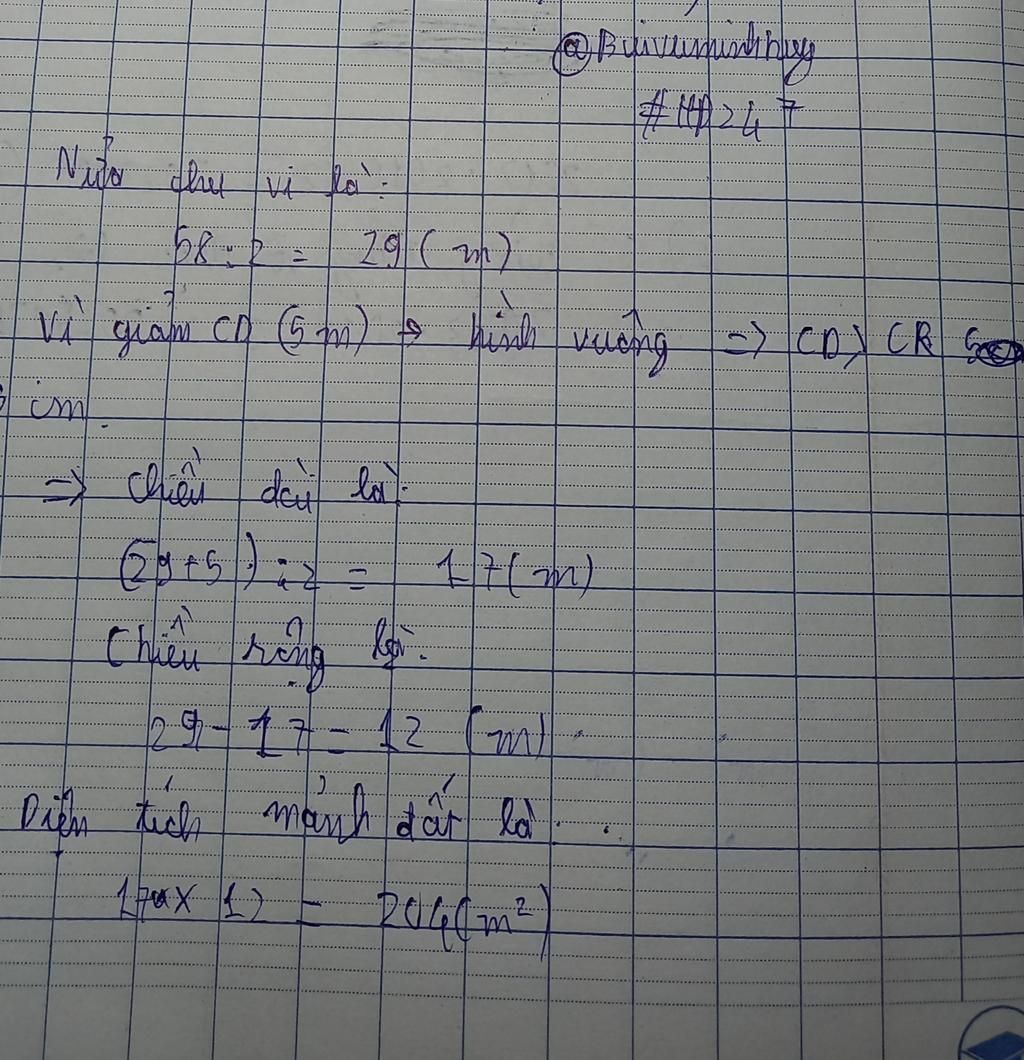 @Buivuminhhuy
#HD247
Nửa chu vi là:
58 : 2 = 29 ( m )
Vì giảm CD (5 m) → hình vuông => CD > CR 5
cm.
=> Chiều dài là:
(29 + 5 ) : 2 = 17 ( m )
Chiều rộng là:
29 - 17 = 12 ( m )
Diện tích mảnh đất là:
17 x 12 = 204 ( m² )